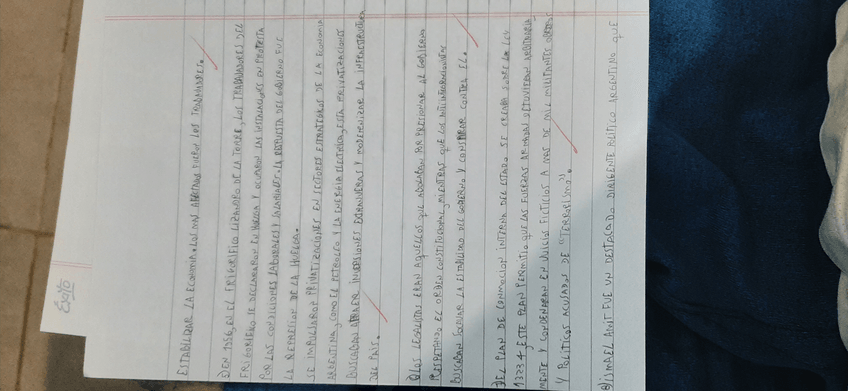 Éxito
ESTABILIZAR LA ECONOMIA. LOS MAS AFECTADOS FUERON LOS TRABAJADORES.
EN 1956, EN EL FRIGORIFICO LIZANDRO DE LA TORRE, LOS TRABAJADORES DEL
FRIGORIFICO SE DECLARARON EN HUELGA Y OCUPARON LAS INSTALACIONES EN PROTESTA
POR LAS CONDICIONES LABORALES Y SALARIALES. LA RESPUESTA DEL GOBIERNO FUE
LA REPRESION DE LA HUELGA.
SE IMPULSARON PRIVATIZACIONES EN SECTORES ESTRATEGICOS DE LA ECONOMIA
ARGENTINA, COMO EL PETROLEO Y LA ENERGIA ELECTRICA, ESTA PRIVATIZACIONES
BUSCABAN ATRAER INVERSIONES EXTRANJERAS Y MODERNIZAR LA INFRAESTRUCTURA
DEL PAIS.
LOS LEGALISTAS ERAN AQUELLOS QUE ABOGABAN POR PRESIONAR AL GOBIERNO
RESPETANDO EL ORDEN CONSTITUCIONAL, MIENTRAS QUE LOS
BUSCABAN SOCAVAR LA ESTABILIDAD DEL GOBIERNO Y CONSPIRAR CONTRA EL.
EL PLAN DE CONMOCION INTERNA DEL ESTADO SE CREABA SOBRE LA LEY
13234 ESTE PLAN PERMITIO QUE LAS FUERZAS ARMADAS DETUVIERAN ARBITRARIA
MENTE Y CONDENARAN EN JUICIOS FICTICIOS A MAS DE MIL MILITANTES OBREROS
Y POLITICOS ACUSADOS DE "TERRORISMO".
ISMAEL AMIT FUE UN DESTACADO DIRIGENTE POLITICO ARGENTINO QUE